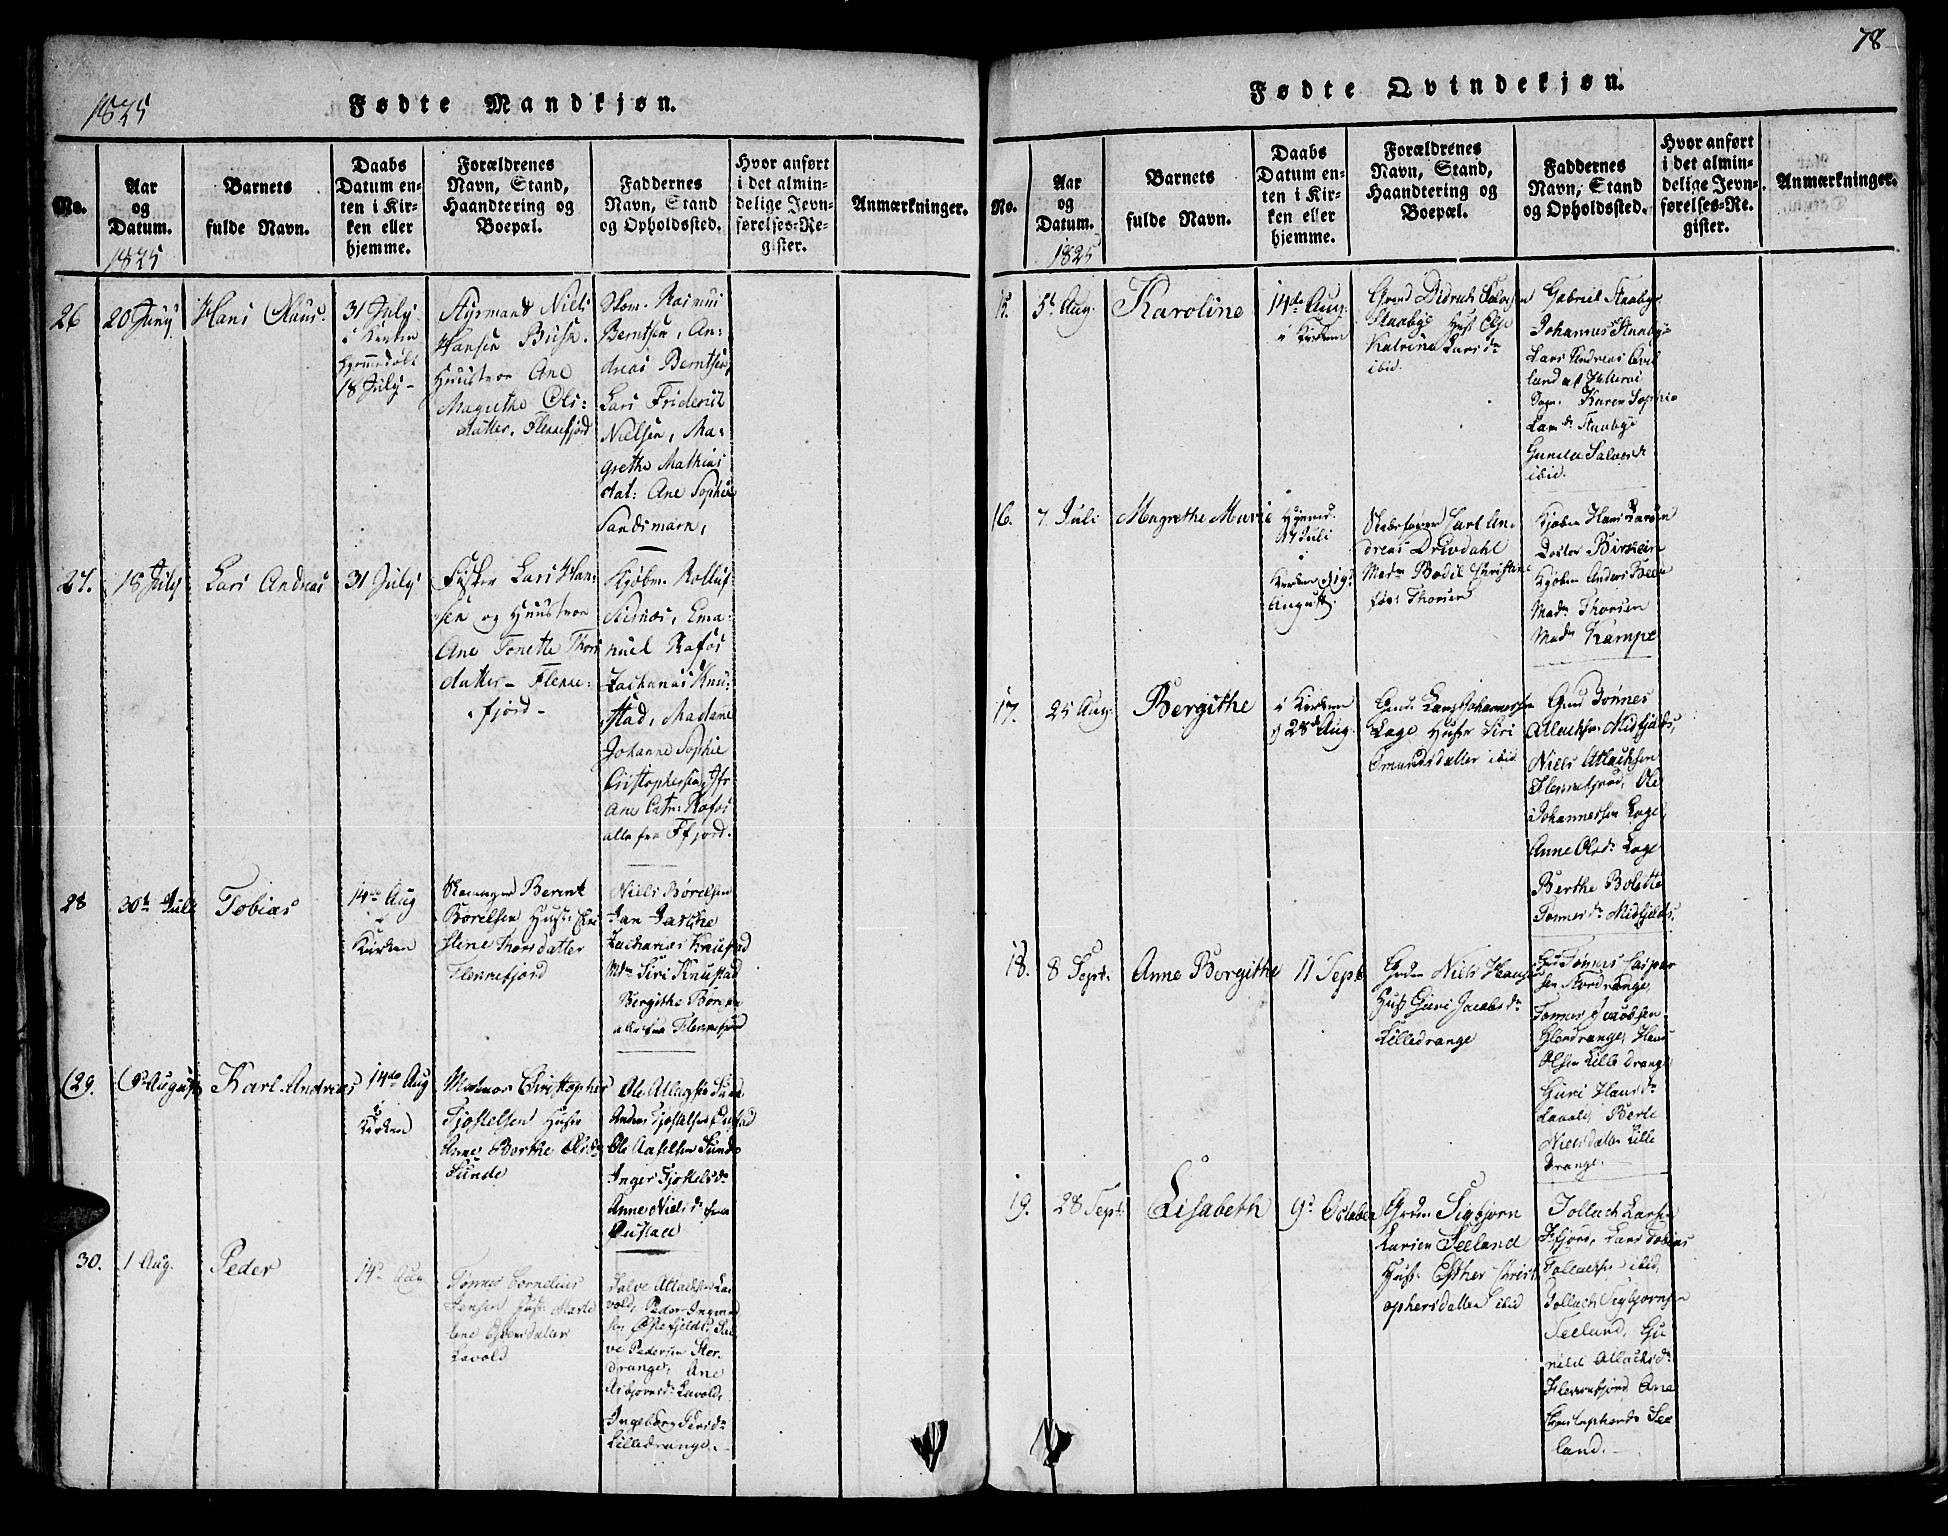 1825
Fødte Mandkjøn.
No.
Aar
og
Datum.
1825
Barnets
fulde Navn.
Daabs
Datum en-
ten i Kir-
ken eller
hjemme.
Forældrenes
Navn, Stand,
Haandtering og
Boepæl.
Faddernes
Navn, Stand
og Opholdssted.
Hvor anført
i det almin-
delige Jevn-
førelses-Re-
gister.
Anmærkninger.
26
20 Juny
Hans Claus.
31 July
i Kirken
hjemmedøbt
18 July
Styrmand Niels
Hansen Busk.
Huustroe Ane
Magrethe Ols:
datter. Flekkefjord
Rasmus
Berntsen, An-
dreas Berntsen,
Lars Friderik
Nielsen, Ma-
grethe Mathias
dat: Ane Sophie
Sandsmark,
27.
18 July
Lars Andreas
31 July
Fisker Lars Han-
sen og Huustroe
Ane Tonette Thors
datter - Flekke-
fjord -
Kjøbm. Rolluf
Nisnæs, Ema-
nuel Rafos
Zacharias Knu-
stad, Madame
Johanne Sophie
Cristophersen, Jfr
Ane Catr: Rafos
alle fra Ffjord.
28
30te Juli
Tobias
14de Aug
i
Kirken
Berent
Børelsen Hust:
stine Thorsdatter
Flekkefjord
Niels Børelsen
Jan Jaschæ
Zacharias Knustad
Mdm Siri Knustad
Bergithe Børens
alle fra Flekkefjord
29.
August
Karl Andreas
14de Aug
i
Kirken
Matros Christopher
Tjøstelsen Hustr
Anne Berthe Olsdr
Sunde
Ole Atlagsen Sunde
Anders Tjøstelsen
Ole Axelsen Sunde
Inger Tjøstelsdr
Anne Nielsdr
30.
1 Aug.
Peder
14de Aug
Tønnes Cornelius
Jensen Hust: Marte
Lavold
Salve Atlaksen La-
vold, Peder Ingvald
sen Østefjelds, Sal-
ve Pedersen Stor-
drange, Ane
Asbjornsdr Lavold,
Ingeborg
Lilledrange. -
78
Fødte Qvindekjøn.
No.
Aar
og
Datum.
1825
Barnets
fulde Navn.
Daabs
Datum en-
ten i Kir-
ken eller
hjemme.
Forældrenes
Navn, Stand,
Haandtering og
Boepæl.
Faddernes
Navn, Stand
og Opholdssted.
Hvor anført
i det almin-
delige Jevn-
førelses-Re-
gister.
Anmærkninger.
15.
5t Aug.
Karoline
14de Aug.
i Kirken
Grmd Didrich Salvesen
Staabye Hust Else
Katrine Larsdr
ibid.
Gabriel Staabye
Johannes Staabye
Lars Andreas
land af
Sogn. Karen Sophie
Larsdr Staabye
Gunild Salvesdr
ibid.
16.
7. Juli
Magrethe Marie
Hjemmed.
17 Juli
i
Kirken
August.
Carl An-
dreas Drivdahl
Madm Bodil Christine
født Thorsen
Kjøbm Hans Larsen
Doctor Birkeim
Kjøbm Anders Beer
Madm Thorsen
Madm Kampe
17.
25 Aug.
Bergithe
i Kirken
28 Aug.
Gmd: Lars Johannessen
Loge Hustr Siri
Omundsdatter ibid
Gmd Tønnes
Atlaksen Midfjelds,
Niels Atlaksen
Flekkefjord, Ole
Johannessen Loge,
Anne Olsdr Loge
Berthe Bolette
Tønnesdr Midfjelds.
18.
8 Sept.
Anne Bergithe
11 Sept
Grdm Niels Hansen
Hust Guri Jacobsdr
Lilledrange
Tønnes Casper
sen Stordrange,
Tønnes Jacobsen
drange, Hans
Olsen Lilledrange
Guri Hansdr
Berte
Nielsdatter Lille
Drange.
19.
28 Sept.
Lisabeth
9de October
Grdm Sigbjorn
Larsen Seeland
Hust. Esther Christ
ophersdatter ibid
Tollach Larsen
Ffjord, Lars Tobias
Tollachsen ibid,
Tollach Sigbjornsen
Seeland, Gu
nild Atlaksdr
Flekkefjord Ane
Christophersdr See
land. -